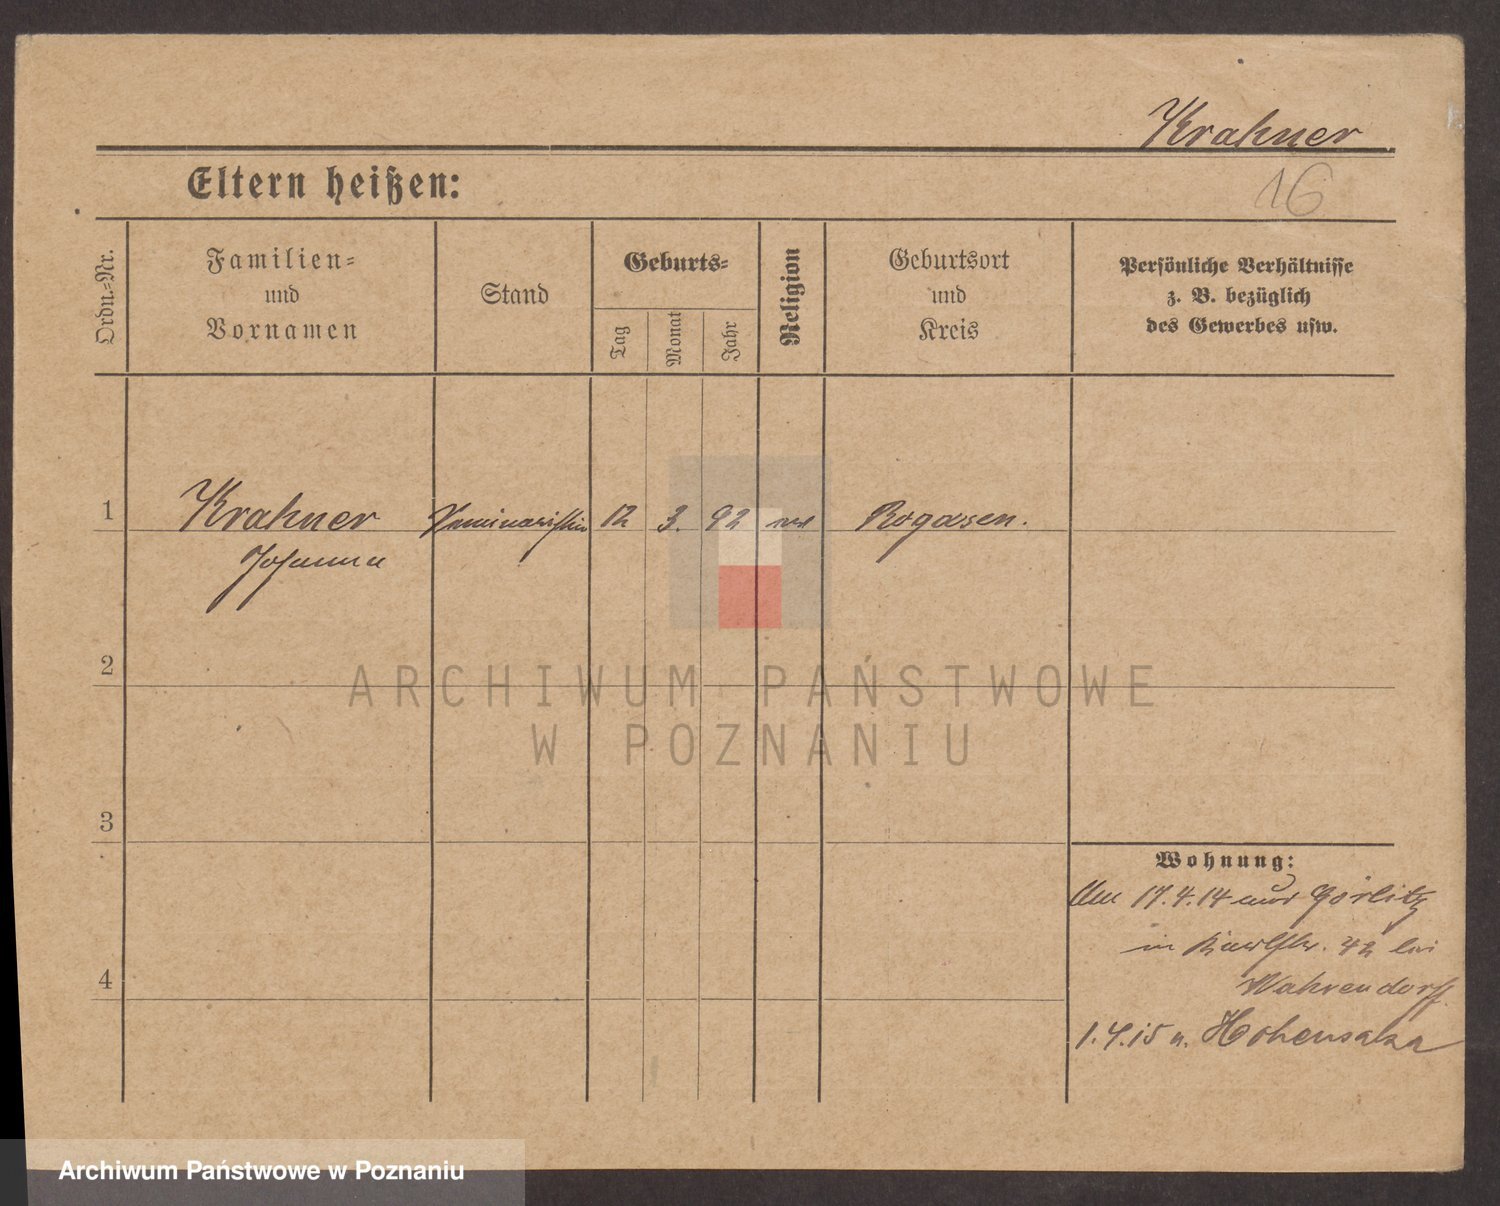 Krahner
Eltern heißen:
16
Ordn.-Nr.
Familien-
und
Vornamen
Stand
Geburts-
Tag
Monat
Jahr
Religion
Geburtsort
und
Kreis
Persönliche Verhältnisse
z. B. bezüglich
des Gewerbes usw.
1 Krahner Seminaristin 12 3. 92 Rogasen.
Johanna
2
ARCHIWUM PAŃSTWOWE
W POZNANIU
3
4
Wohnung:
Am 17.4.14 aus Görlitz
in 42 bei
Wahrendorff
1.4.15 n. Hohensalza
Archiwum Państwowe w Poznaniu